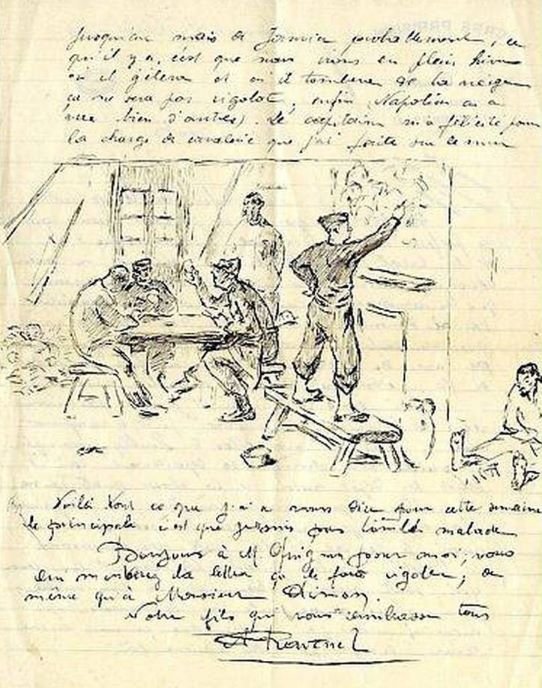 Jusqu'au mois de Janvier probablement, ce
qu'il y a, c'est que nous irons en plein hiver
où il gèlera et où il tombera de la neige
ça ne sera pas rigolot, enfin Napoléon en a
bien d'autres). Le capitaine m'a félicité pour
la charge de cavalerie que j'ai faite sur le mur
Voilà tout ce que j'ai à vous dire pour cette semaine
le principale c'est que je suis pas tombé malade
Bonjours à M pour moi, vous
lui montrerez la lettre ça le fera rigoler, de
même qu'à Monsieur
Votre fils qui vous embrasse tous